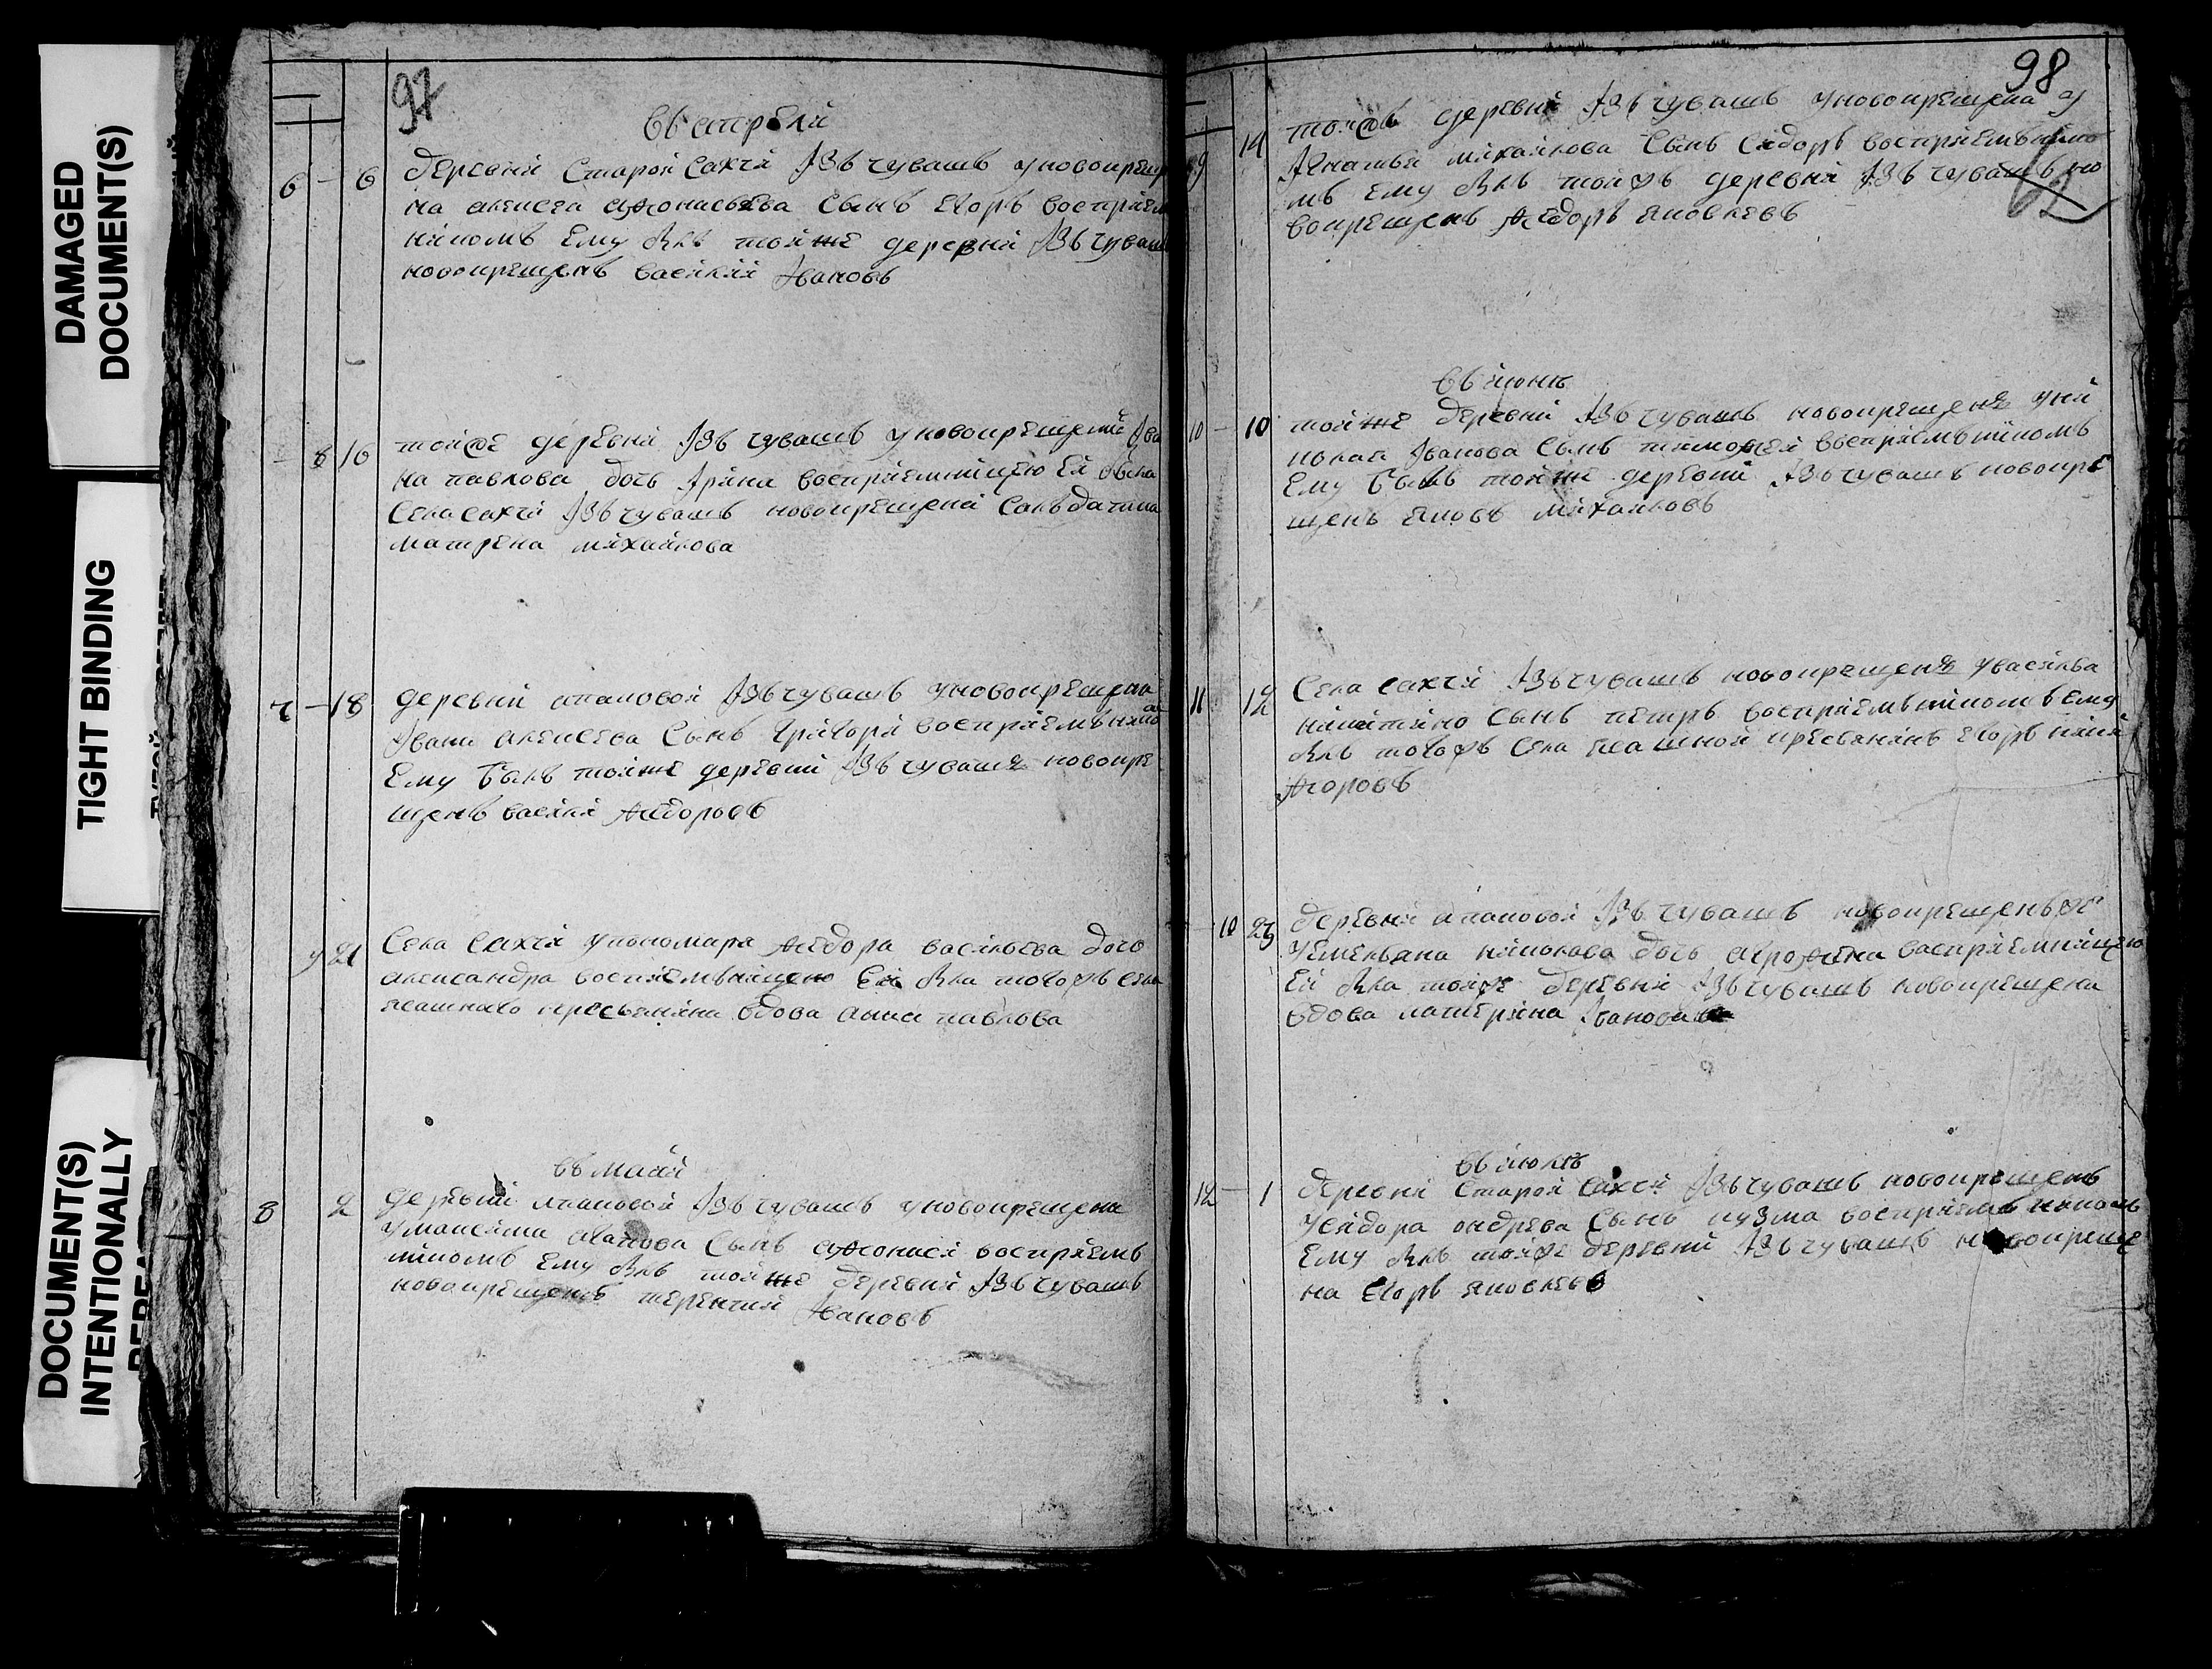 DAMAGED
DOCUMENT(S)
TIGHT BINDING
DOCUMENT(S)
INTENTIONALLY
97
въ апрѣли
6 — 6 деревни старой сахчи изъ чувашъ уновокреще
на алексея афонасьева сынъ егоръ восприем
никомъ ему былъ тойже деревни изъ чуваш
новокрещенъ василий ивановъ
8 16 тойже деревни изъ чувашъ уновокрещение ива
на павлова дочь ирина восприемницею ей была
села сахчи изъ чувашъ новокрещена салъдатка
матрена михайлова
7 — 18 деревни апаковой изъ чувашъ уновокрещена
ивана алексеева сынъ григори восприемънико
ему былъ тойже деревни изъ чувашъ новокре
щенъ васили федоровъ
9 21 села сахчи упономаря федора васильева дочь
александра восприемъницею ей была тогожъ села
ясашнаго кресьянина вдова анна павлова
въ маии
8 2 деревни апаковой изъ чувашъ уновокрещена
умаксима сынъ афонаси восприемъ
никомъ ему былъ тойже деревни изъ чувашъ
новокрещенъ терентий ивановъ
98
9 14 тойжъ деревни изъ чувашъ уновокрещена у
игнатья михайлова сынъ сидоръ восприемънико
мъ ему былъ тойжъ деревни изъ чувашъ но
вокрещенъ федоръ яковлевъ
въ июнѣ
10 — 10 тойже деревни изъ чувашъ новокрещенъ уни
колая иванова сынъ тимофей восприемъникомъ
ему былъ тойже деревни изъ чувашъ новокре
щенъ яковъ михайловъ
11 12 села сахчи изъ чувашъ новокрещенъ увасилья
никитино сынъ петръ восприемъникомъ ему
былъ тогожъ села ясашной кресьянинъ егоръ
10 23 деревни апаковой изъ чувашъ новокрещенъ
уемельяна дочь афросина восприемницею
ей была тойже деревни изъ чувашъ новокрещена
вдова катерина иванова
въ июлѣ
12 — 1 деревни старой сахчи изъ чувашъ новокрещенъ
усидора ондрева сынъ кузма восприемъникомъ
ему былъ тойже деревни изъ чувашъ новокреще
на егоръ яковлевъ